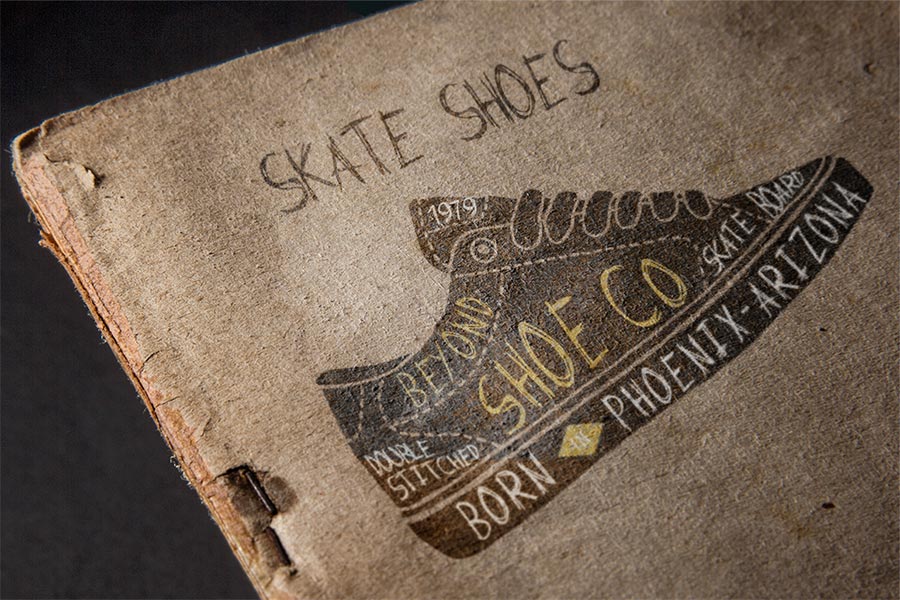 SKATE SHOES
1979
BEYOND
SHOE CO
SKATE BOARD
DOUBLE
STITCHED
BORN IN PHOENIX-ARIZONA